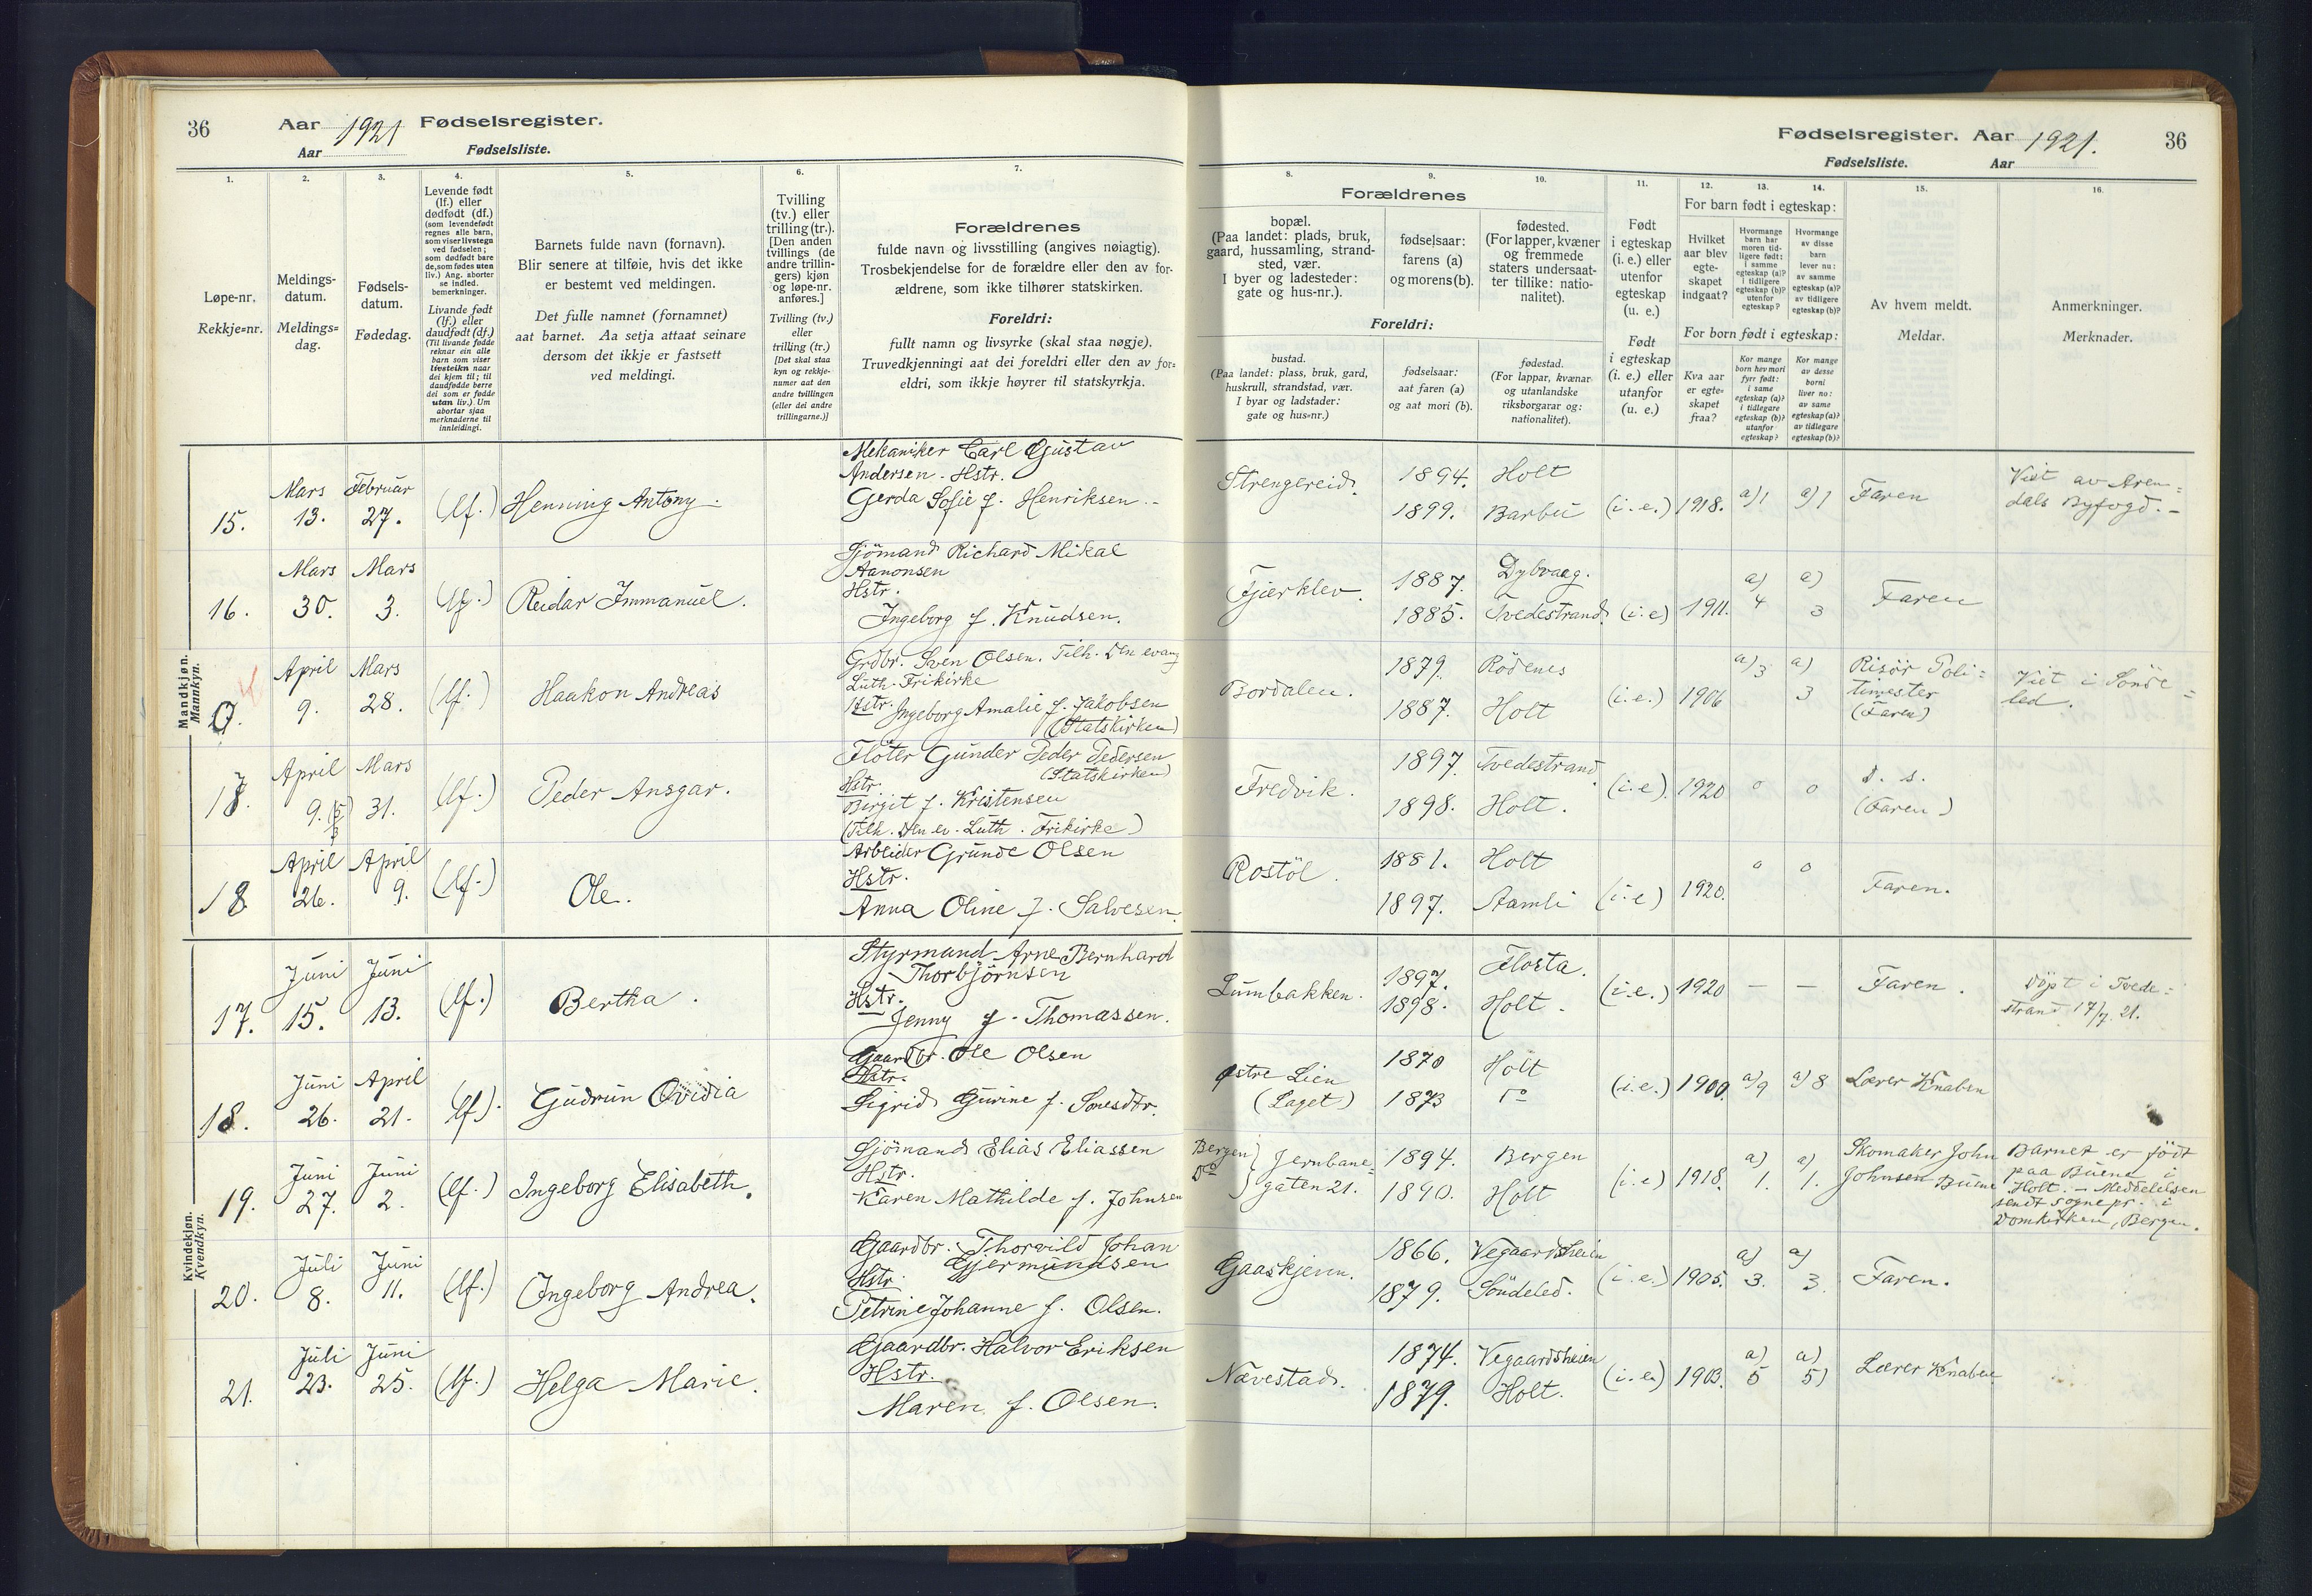 36 Aar 1921 Fødselsregister.
Aar Fødselsliste.
Fødselsregister. Aar 1921. 36
Fødselsliste. Aar
1.
Løpe-nr.
Rekkje=nr.
2.
Meldings-
datum.
Meldings=
dag.
3.
Fødsels-
datum.
Fødedag.
4.
Levende født
(lf.) eller
dødfødt (df.)
(som levendefødt
regnes alle barn,
som viser livstegn
ved fødselen;
som dødfødt bare
de, som fødes uten
liv.) Ang. aborter
se indled.
bemerkninger.
Livande født
(lf.) eller
daudfødt (df.)
(Til livande fødde
reknar ein alle
barn som viser
livsteikn naar
dei kjem til; til
daudfødde berre
dei som er fødde
utan liv.) Um
abortar sjaa
merknaderne til
innleidingi.
5.
Barnets fulde navn (fornavn).
Blir senere at tilføie, hvis det ikke
er bestemt ved meldingen.
Det fulle namnet (fornamnet)
aat barnet. Aa setja attaat seinare
dersom det ikkje er fastsett
ved meldingi.
6.
Tvilling
(tv.) eller
trilling (tr.).
[Den anden
tvillings (de
andre trillin-
gers) kjøn
og løpe-nr.
anføres.]
Tvilling (tv.)
eller
trilling (tr.)
[Det skal staa
kyn og rekkje-
numer aat den
andre tvillingen
(eller dei andre
trillingarne.)]
7.
Forældrenes
fulde navn og livsstilling (angives nøiagtig).
Trosbekjendelse for de forældre eller den av for-
ældrene, som ikke tilhører statskirken.
Foreldri:
fullt namn og livsyrke (skal staa nøgje).
Truvedkjenningi aat dei foreldri eller den av for=
eldri, som ikkje høyrer til statskyrkja.
8.
Forældrenes
bopæl.
(Paa landet: plads, bruk,
gaard, hussamling, strand-
sted, vær.
I byer og ladesteder:
gate og hus-nr.).
Foreldri:
bustad.
(Paa landet: plass, bruk, gard,
huskrull, strandstad, vær.
I byar og ladstader:
gate og hus=nr.)
9.
fødselsaar:
farens (a)
og morens (b).
fødselsaar:
aat faren (a)
og aat mori (b).
10.
fødested.
(For lapper, kvæner
og fremmede
staters undersaat-
ter tillike: natio-
nalitet).
fødestad.
(For lappar, kvænar
og utanlandske
riksborgarar og:
nationalitet).
11.
Født
i egteskap
(i. e.) eller
utenfor
egteskap
(u. e.)
Født
i egteskap
(i. e.) eller
utanfor
(u. e.)
12. 13. 14.
For barn født i egteskap:
Hvilket
aar blev
egte-
skapet
indgaat?
Hvormange
barn har
moren tid-
ligere født:
i samme
egteskap (a)?
i tidligere
egteskap (b)?
utenfor
egteskap?
Hvormange
av disse
barn
lever nu:
av samme
egteskap (a)?
av tidligere
egteskap (b)?
For born født i egteskap:
Kva aar
er egte=
skapet
fraa?
Kor mange
born hev mori
fyrr født:
i same
egteskap (a)?
i tidlegare
egteskap (b)?
utanfor
egteskap?
Kor mange
av desse
borni
liver no:
av same
egteskap (a)?
av tidlegare
egteskap (b)?
15.
Av hvem meldt.
Meldar.
16.
Anmerkninger.
Merknader.
Mandkjøn.
Mannkyn.
15. Mars 13. Februar 27. (lf.) Henning Antony.
Mekaniker Carl Gustav
Andersen. Hstr.
Gerda Sofie f. Henriksen.
Strengereid. 1894. Holt
1899. Barbu (i. e.) 1918. a)1 a)1 Faren
Viet av Aren=
dals Byfogd.
16. Mars 30. Mars 3. (lf.) Reidar Immanuel.
Sjömand Richard Mikal
Aanonsen
Hstr.
Ingeborg f. Knudsen.
Fjerklev. 1887. Dybvaag.
1885. Tvedestrand (i. e) 1911. a) 4 a) 3 Faren
April 9. Mars 28. (lf.) Haakon Andreas
Grdbr. Sven Olsen. Tilh. Den evang
Luth. Frikirke
Hstr. Ingeborg Amalie f. Jakobsen
(Statskirken)
Bordalen. 1879. Rödenes
1887. Holt (i. e.) 1906 a)3 a) 3
Risör Poli=
timester
(Faren)
Viet i Sönde=
led.
April 9. Mars 31. (lf.) Peder Ansgar.
Flöter Gunder Peder Pedersen
(Statskirken)
Hstr.
Birgit f. Kristensen
(Tilh. Den ev. Luth. Frikirke)
Fredvik. 1897. Tvedestrand.
1898. Holt. (i. e). 1920 0 0
D. s.
(Faren)
18 April 26. April 9. (lf.) Ole.
Arbeider Grunde Olsen
Hstr.
Anna Oline f. Salvesen.
Rostöl. 1881. Holt
1897. Aamli (i. e) 1920. 0 0 Faren.
Kvindekjøn.
Kvendkyn.
17. Juni 15. Juni 13. (lf.) Bertha.
Styrmand Arne Bernhard
Thorbjörnsen
Hstr.
Jenny f. Thomassen.
Lumbakken. 1897. Flosta.
1898. Holt. (i. e.) 1920 — — Faren.
Döpt i Tvede=
strand 17/7. 21.
18. Juni 26. April 21. (lf). Gudrun Ovidia
Gaardbr. Ole Olsen
Hstr.
Sigrid Gurine f.
Østre Lien
(Laget)
1870 Holt
1873 Do (i. e.) 1900. a)9 a)8 Lærer Knaben
19. Juni 27. Juni 2. (lf.) Ingeborg Elisabeth.
Sjömand Elias Eliassen
Hstr.
Karen Mathilde f. Johnsen
Bergen Do } Jernbane=
gaten 21.
1894. Bergen
1890. Holt (i. e) 1918. a) 1. a) 1.
Skomaker John
Johnsen Buene
Barnet er födt
paa Buene i
Holt. — Meddelelsen
sendt sognepr. i
Domkirken, Bergen.
20. Juli 8. Juni 11. (lf.) Ingeborg Andrea.
Gaardbr. Thorvild Johan
Gjermundsen
Hstr.
Petrine Johanne f. Olsen.
Gaaskjenn. 1866. Vegaardsheien
1879. Söndeled. (i. e.) 1905. a) 3. a) 3 Faren.
21. Juli 23. Juni 25. (lf.) Helga Marie.
Gaardbr. Halvor Eriksen
Hstr.
Maren f. Olsen.
Nævestad. 1874. Vegaardsheien
1879. Holt. (i. e) 1903. a) 5 a) 5) Lærer Knaben